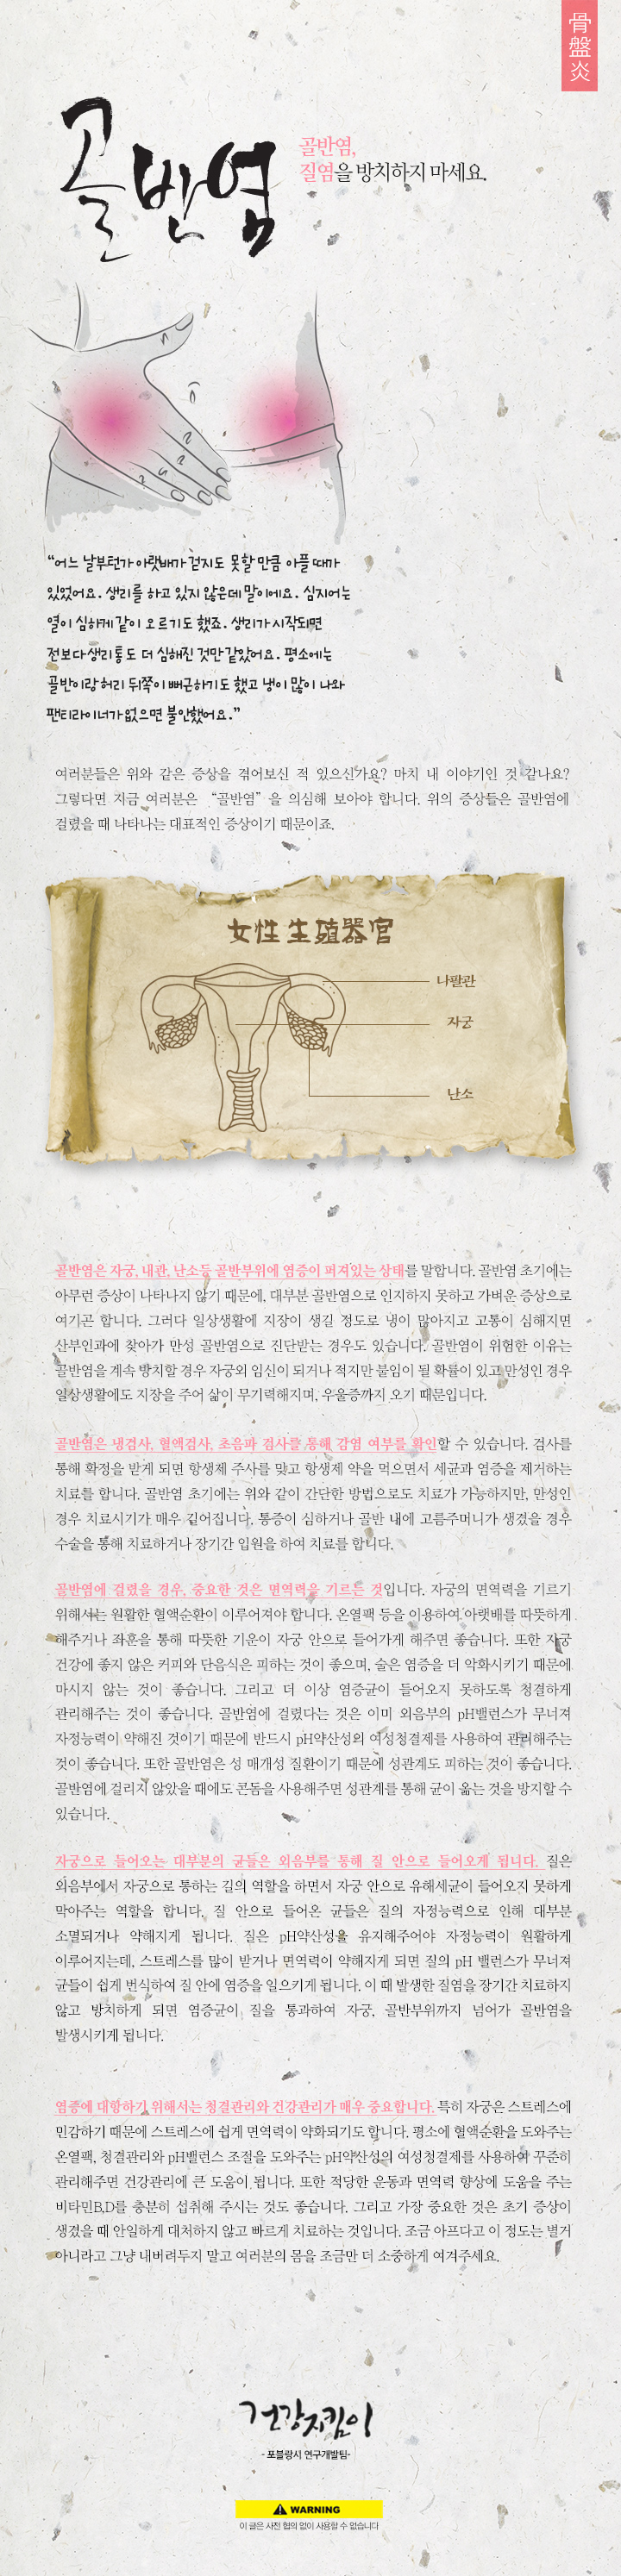 骨盤炎
골반염
골반염,
질염을 방치하지 마세요.
“어느 날부턴가 아랫배가 걷지도 못할 만큼 아플 때가
있었어요. 생리를 하고 있지 않은데 말이에요. 심지어는
열이 심하게 같이 오르기도 했죠. 생리가 시작되면
전보다 생리통도 더 심해진 것만 같았어요. 평소에는
골반이랑 허리 뒤쪽이 뻐근하기도 했고 냉이 많이 나와
팬티라이너가 없으면 불안했어요.”
여러분들은 위와 같은 증상을 겪어보신 적 있으신가요? 마치 내 이야기인 것 같나요?
그렇다면 지금 여러분은 “골반염”을 의심해 보아야 합니다. 위의 증상들은 골반염에
걸렸을 때 나타나는 대표적인 증상이기 때문이죠.
女性生殖器官
나팔관
자궁
난소
골반염은 자궁, 내관, 난소등 골반부위에 염증이 퍼져있는 상태를 말합니다. 골반염 초기에는
아무런 증상이 나타나지 않기 때문에, 대부분 골반염으로 인지하지 못하고 가벼운 증상으로
여기곤 합니다. 그러다 일상생활에 지장이 생길 정도로 냉이 많아지고 고통이 심해지면
산부인과에 찾아가 만성 골반염으로 진단받는 경우도 있습니다. 골반염이 위험한 이유는
골반염을 계속 방치할 경우 자궁외 임신이 되거나 적지만 불임이 될 확률이 있고 만성인 경우
일상생활에도 지장을 주어 삶이 무기력해지며, 우울증까지 오기 때문입니다.
골반염은 냉검사, 혈액검사, 초음파 검사를 통해 감염 여부를 확인할 수 있습니다. 검사를
통해 확정을 받게 되면 항생제 주사를 맞고 항생제 약을 먹으면서 세균과 염증을 제거하는
치료를 합니다. 골반염 초기에는 위와 같이 간단한 방법으로도 치료가 가능하지만, 만성인
경우 치료시기가 매우 길어집니다. 통증이 심하거나 골반 내에 고름주머니가 생겼을 경우
수술을 통해 치료하거나 장기간 입원을 하여 치료를 합니다.
골반염에 걸렸을 경우, 중요한 것은 면역력을 기르는 것입니다. 자궁의 면역력을 기르기
위해서는 원활한 혈액순환이 이루어져야 합니다. 온열팩 등을 이용하여 아랫배를 따뜻하게
해주거나 좌훈을 통해 따뜻한 기운이 자궁 안으로 들어가게 해주면 좋습니다. 또한 자궁
건강에 좋지 않은 커피와 단음식은 피하는 것이 좋으며, 술은 염증을 더 악화시키기 때문에
마시지 않는 것이 좋습니다. 그리고 더 이상 염증균이 들어오지 못하도록 청결하게
관리해주는 것이 좋습니다. 골반염에 걸렸다는 것은 이미 외음부의 pH밸런스가 무너져
자정능력이 약해진 것이기 때문에 반드시 pH약산성의 여성청결제를 사용하여 관리해주는
것이 좋습니다. 또한 골반염은 성 매개성 질환이기 때문에 성관계도 피하는 것이 좋습니다.
골반염에 걸리지 않았을 때에도 콘돔을 사용해주면 성관계를 통해 균이 옮는 것을 방지할 수
있습니다.
자궁으로 들어오는 대부분의 균들은 외음부를 통해 질 안으로 들어오게 됩니다. 질은
외음부에서 자궁으로 통하는 길의 역할을 하면서 자궁 안으로 유해세균이 들어오지 못하게
막아주는 역할을 합니다. 질 안으로 들어온 균들은 질의 자정능력으로 인해 대부분
소멸되거나 약해지게 됩니다. 질은 pH약산성을 유지해주어야 자정능력이 원활하게
이루어지는데, 스트레스를 많이 받거나 면역력이 약해지게 되면 질의 pH 밸런스가 무너져
균들이 쉽게 번식하여 질 안에 염증을 일으키게 됩니다. 이 때 발생한 질염을 장기간 치료하지
않고 방치하게 되면 염증균이 질을 통과하여 자궁, 골반부위까지 넘어가 골반염을
발생시키게 됩니다.
염증에 대항하기 위해서는 청결관리와 건강관리가 매우 중요합니다. 특히 자궁은 스트레스에
민감하기 때문에 스트레스에 쉽게 면역력이 약화되기도 합니다. 평소에 혈액순환을 도와주는
온열팩, 청결관리와 pH밸런스 조절을 도와주는 pH약산성의 여성청결제를 사용하여 꾸준히
관리해주면 건강관리에 큰 도움이 됩니다. 또한 적당한 운동과 면역력 향상에 도움을 주는
비타민B,D를 충분히 섭취해 주시는 것도 좋습니다. 그리고 가장 중요한 것은 초기 증상이
생겼을 때 안일하게 대처하지 않고 빠르게 치료하는 것입니다. 조금 아프다고 이 정도는 별거
아니라고 그냥 내버려두지 말고 여러분의 몸을 조금만 더 소중하게 여겨주세요.
건강지킴이
- 포블랑시 연구개발팀-
WARNING
이 글은 사전 협의 없이 사용할 수 없습니다